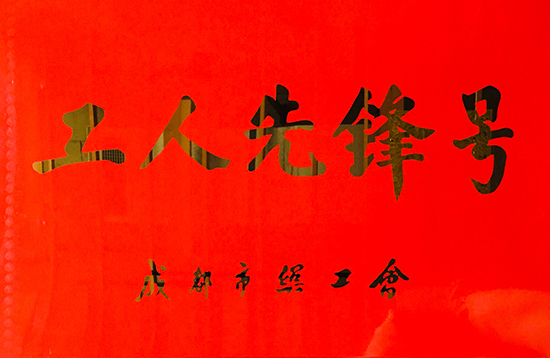 工人先锋号
成都市总工會